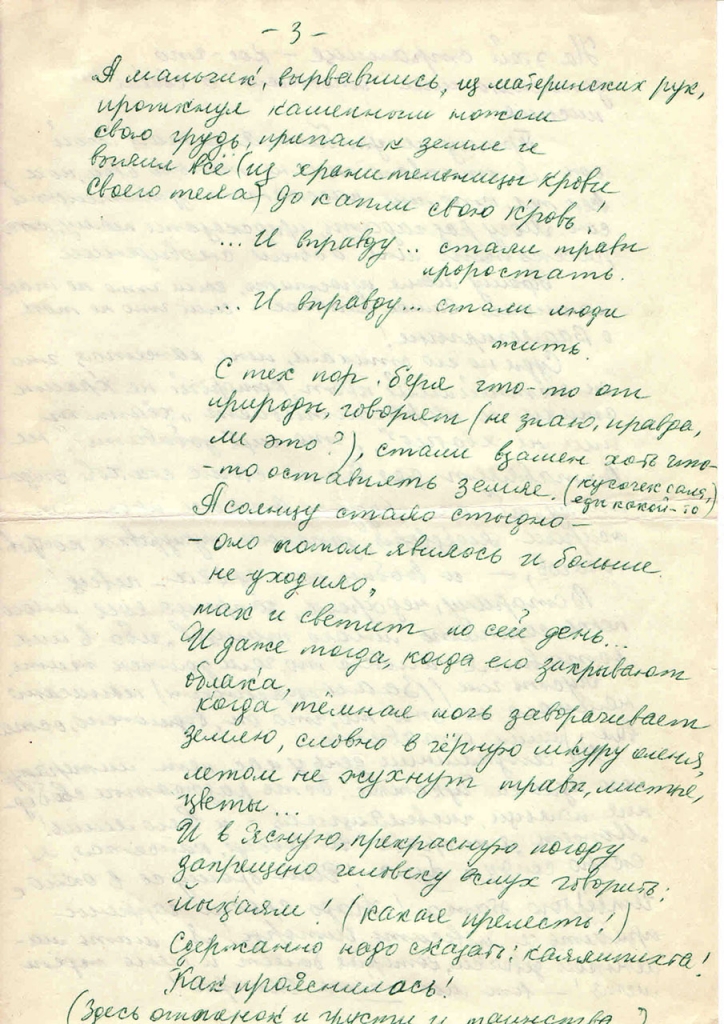 - 3 -
А мальчик, вырвавшись, из материнских рук,
проткнул каменным ножом
свою грудь, припал к земле и
вылил всё (из хранительницы крови
своего тела) до капли свою кровь!
... И вправду... стали травы
проростать.
... И вправду... стали люди
жить.
С тех пор. беря что-то от
природы, говорят (не знаю, правда,
ли это?), стали взамен хоть что-
-то оставлять земле. (кусочек сала,
еды какой-то)
А солнцу стало стыдно -
- оно потом явилось и больше
не уходило,
так и светит по сей день...
И даже тогда, когда его закрывают
облака,
когда тёмная ночь заворачивает
землю, словно в чёрную шкуру оленя,
летом не жухнут травы, листья,
цветы...
И в ясную, прекрасную погоду
запрещено человеку вслух говорить:
! (какая прелесть!)
Сдержанно надо сказать: !
Как прояснилось!
(Здесь оттенок и грусти и таинства)